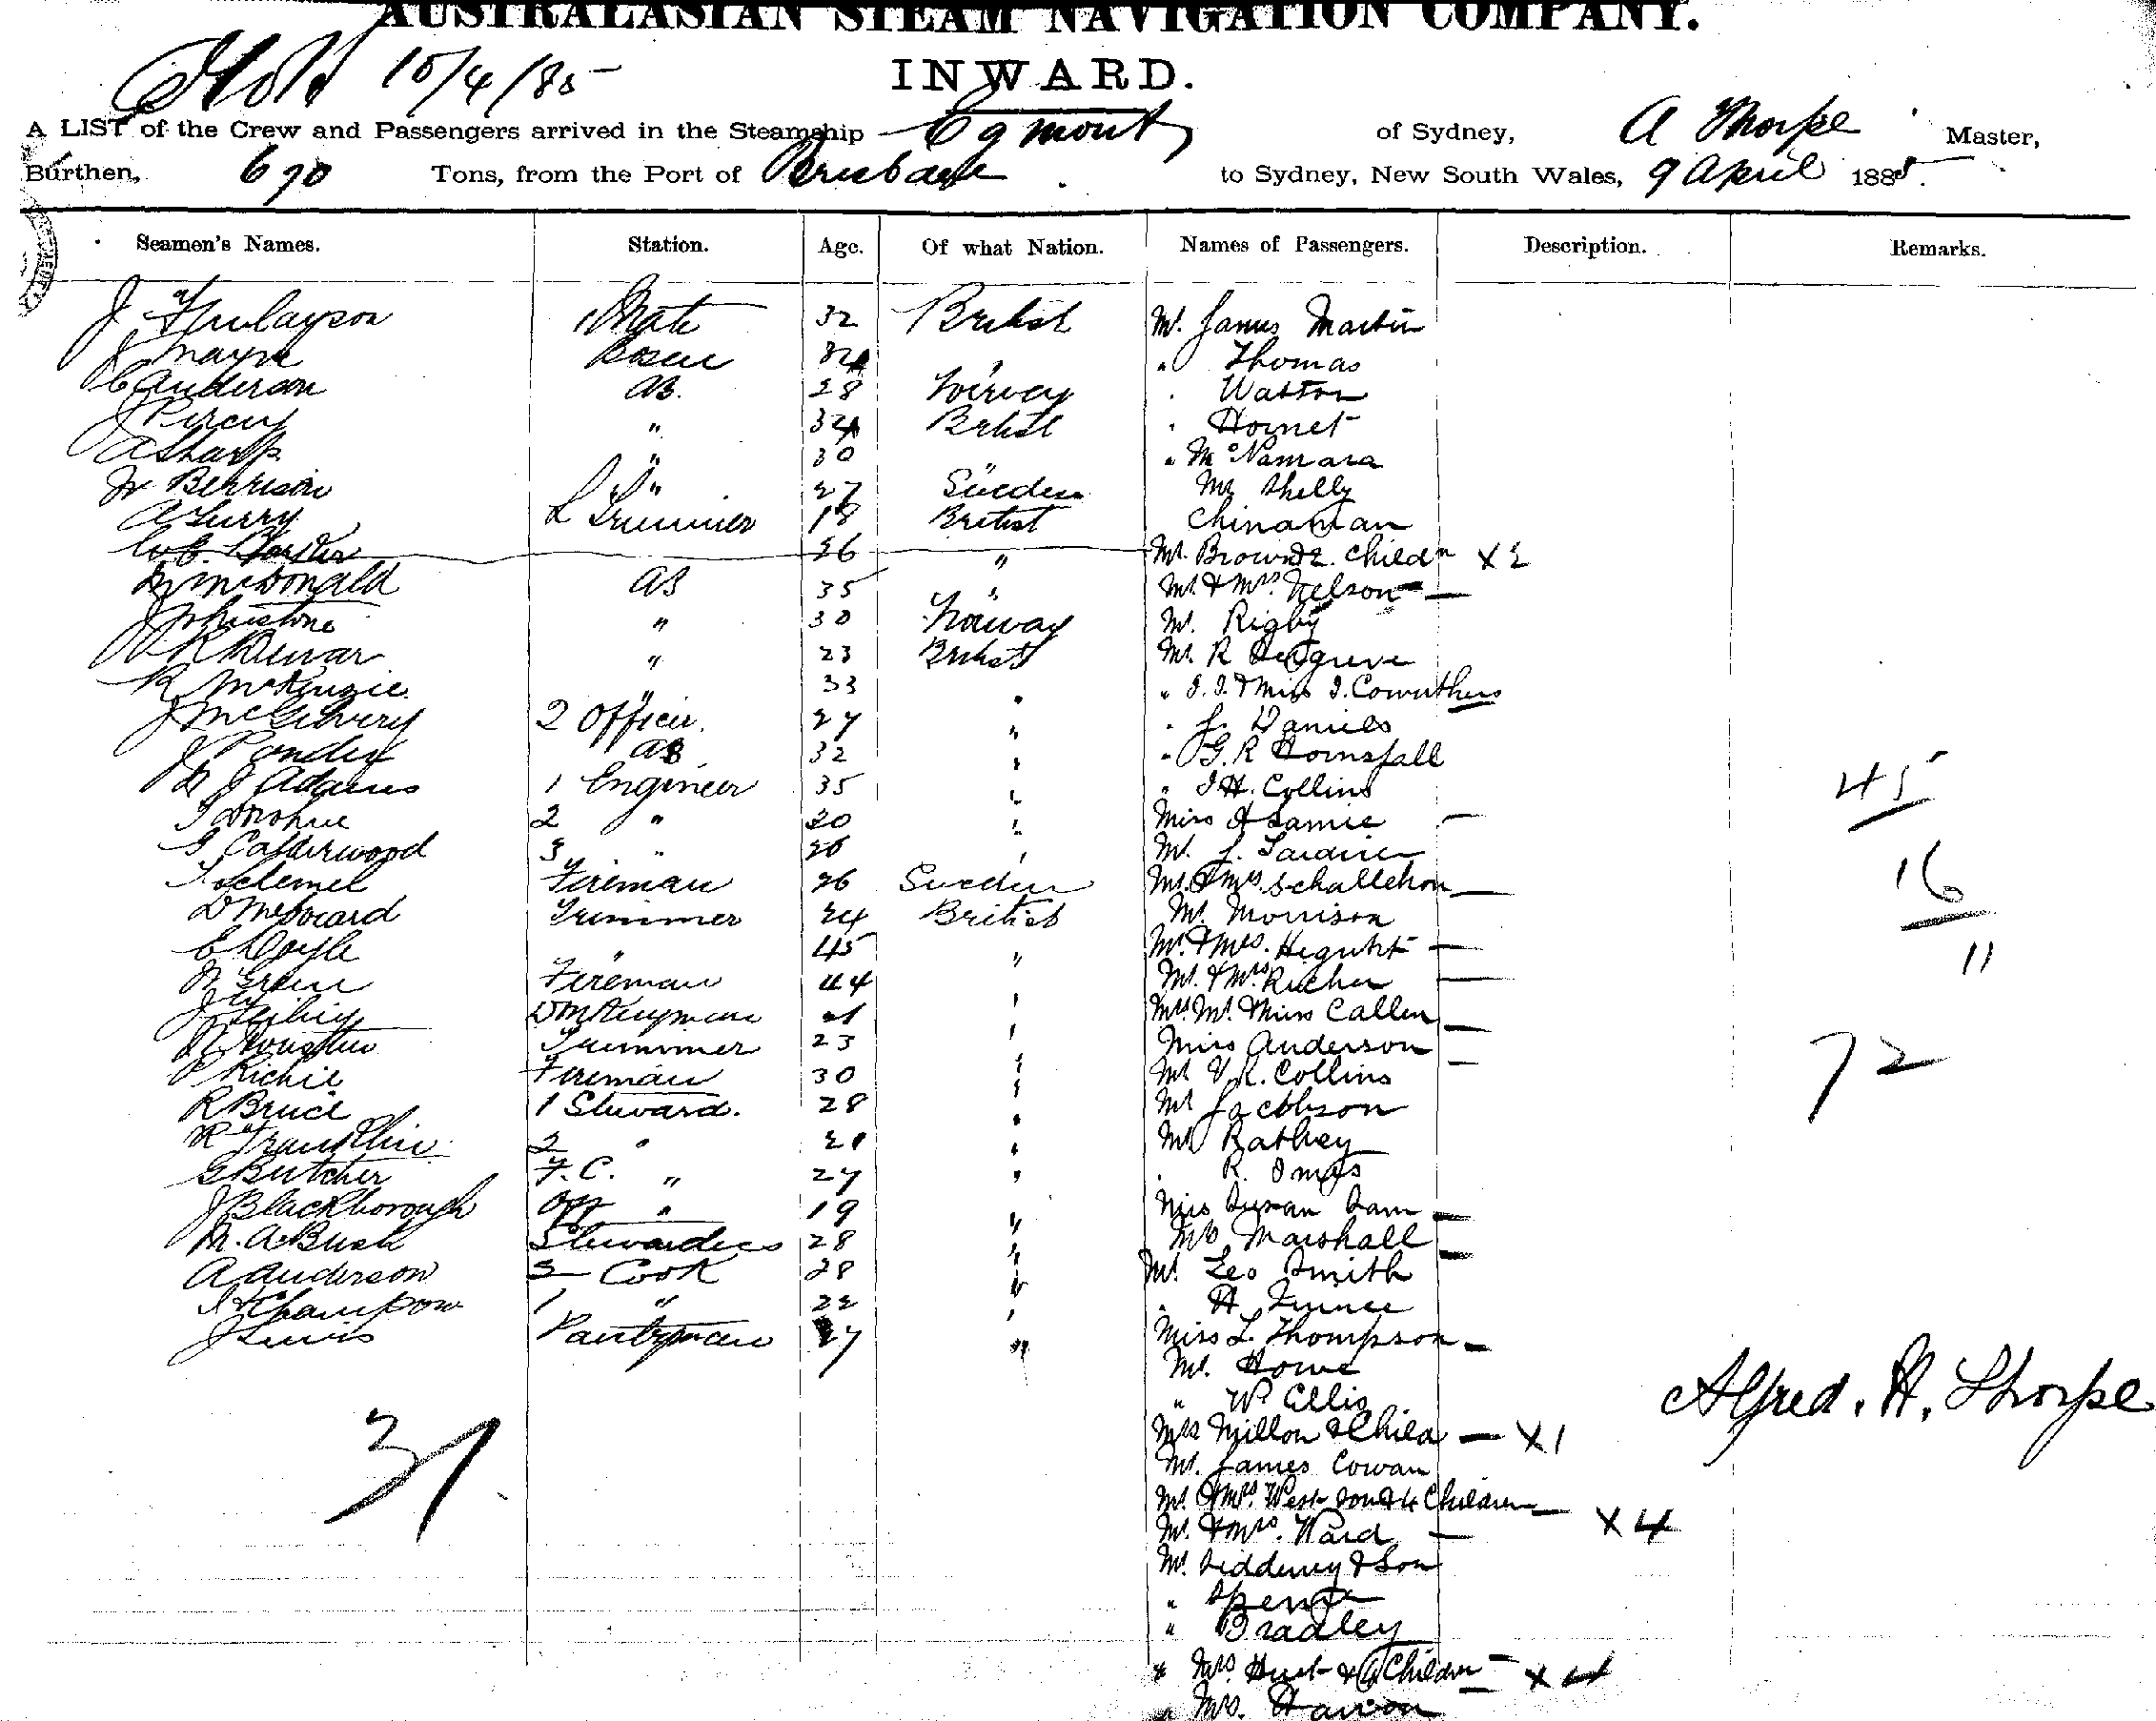 AUSTRALASIAN STEAM NAVIGATION COMPANY.
10/4/85
INWARD.
A LIST of the Crew and Passengers arrived in the Steamship Egmont, of Sydney, A Thorpe Master,
Burthen, 690 Tons, from the Port of Brisbane to Sydney, New South Wales, 9 April 1885.
Seamen's Names. Station. Age. Of what Nation. Names of Passengers. Description. Remarks.
J Finlayson 1 Mate 32 British Mr. James Martin
J Mayne 32 " Thomas
C Anderson AB. 28 Norway Watson
J Percy " 32 British Hornet
A Sharp " 30 " McNamara
Berrison " 27 Sweden Mr Shelly
A Lurry L Trimmer 18 British Chinaman
26 " Mr. Brown & 2 Childn X2
McDonald AB 35 " Mr. & Mrs. Nelson —
Johnstone " 30 Norway Mr. Rigby
R Dewar " 23 British Mr. R
R McKenzie " 33 " J. J. & Miss J. Cowuthers
J McGilvery 2 Officer. 27 " J. Daniels
J Pondex AB 32 " G. R Hornsfall
J Adams 1 Engineer 35 " J H. Collins
45
T Donohue 2 " 30 " Miss Lamie —
G Catherwood 3 " 26 " Mr. J. Gardiner
Fireman 26 Sweden Mr. & Mrs. Schallehon —
16
D McSward Trimmer 24 British Mr. Morrison
E Doyle " 45 " Mr. & Mrs. —
11
Green Fireman 44 " Mr. & Mrs. Richer —
21 " Mrs Mr. & Miss Callen —
Trimmer 23 " Miss Anderson —
P Richie Fireman 30 " Mr V. R. Collins
72
R Bruce 1 Steward. 28 " Mr Jacobson
R Franklin 2 " 21 " Mr Rathey
G Butcher F. C. " 27 " R.
J Blackborough " 19 " Miss Susan Sam —
M. A. Bush Stewardess 28 " Mrs Marshall —
A Anderson 2 Cook 28 " Mr. Leo Smith
Champion 1 " 22 " H.
J Lewis Pantryman 27 " Miss L. Thompson —
Mr. Howe
" W. Ellis
Alfred. H. Thorpe
31
Mrs Millon & Child — X1
Mr. James Cowan
Mr. & Mrs. West Son & 4 Children — X4
Mr. & Mrs. Ward —
Mr. Sidduny & Son
" Spence
" Bradley
" Mrs. Hunt & 4 Children — X4
" Mrs. Hanson